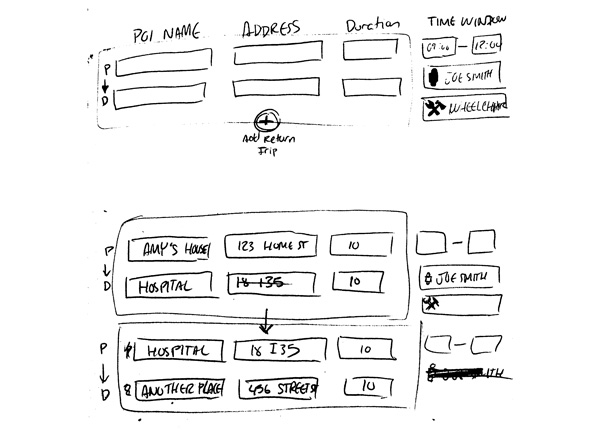 POI NAME ADDRESS Duration TIME WINDOW
P 09:00 - 12:00
D JOE SMITH
WHEELCHAIR
Add Return
Trip
P AMY'S HOUSE 123 HOME ST 10 -
D HOSPITAL 18 I35 10 JOE SMITH
P HOSPITAL 18 I35 10 -
D ANOTHER PLACE 456 STREET ST 10